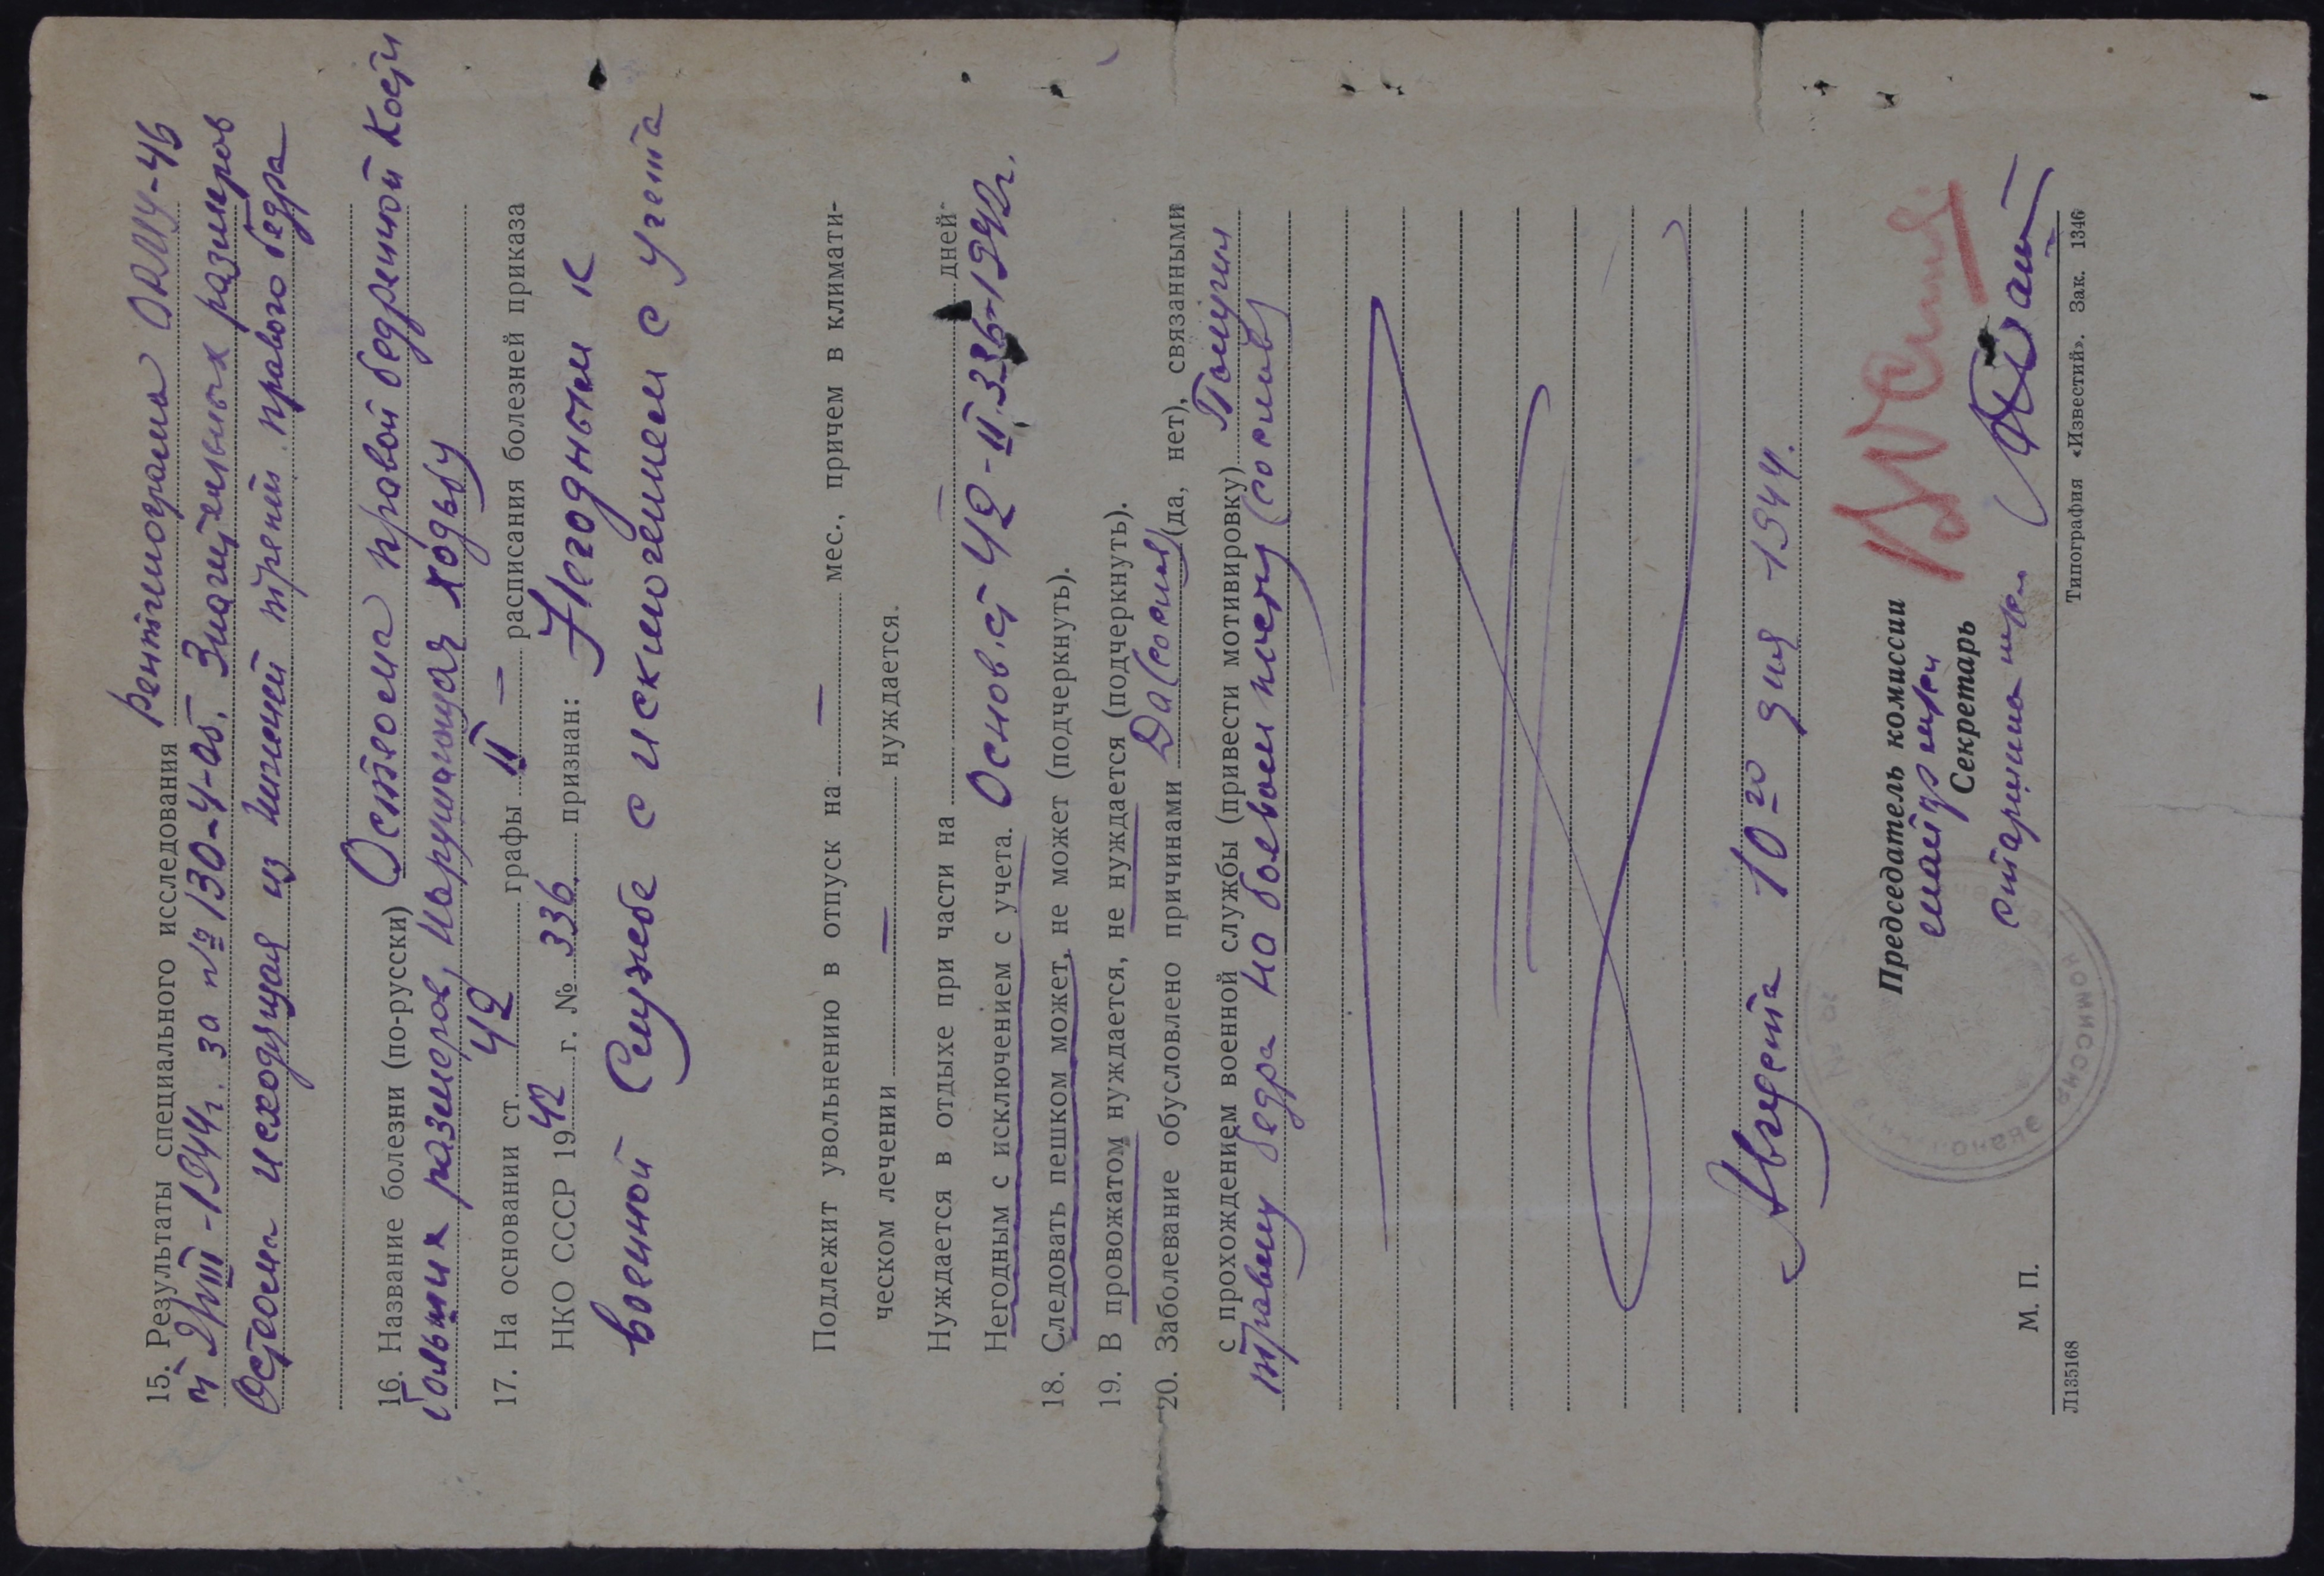 15. Результаты специального исследования Рентгенограма ОРМУ-46
от 2/VIII-1944г. за № 130-4-05. Значительных размеров
Остеома исходящая из нижней трети правого бедра
16. Название болезни (по-русски) Остеома правой бедренной кости
больших размеров, нарушающая ходьбу
17. На основании ст. 42 графы II — расписания болезней приказа
НКО СССР 1942 г. № 336 признан: Негодным к
военной службе с исключением с учета
Подлежит увольнению в отпуск на — мес., причем в климати-
ческом лечении — нуждается.
Нуждается в отдыхе при части на — дней
Негодным с исключением с учета. Основ. ст 42-II.336-1942г.
18. Следовать пешком может, не может (подчеркнуть).
19. В провожатом нуждается, не нуждается (подчеркнуть).
20. Заболевание обусловлено причинами Да (со слов) (да, нет), связанными
с прохождением военной службы (привести мотивировку) Получил
травму бедра на боевом посту (со слов)
Августа 10-го дня 1944.
Председатель комиссии
майор м/сл
Секретарь
старшина м/сл
М. П.
Л135168 Типография «Известий». Зак. 1346